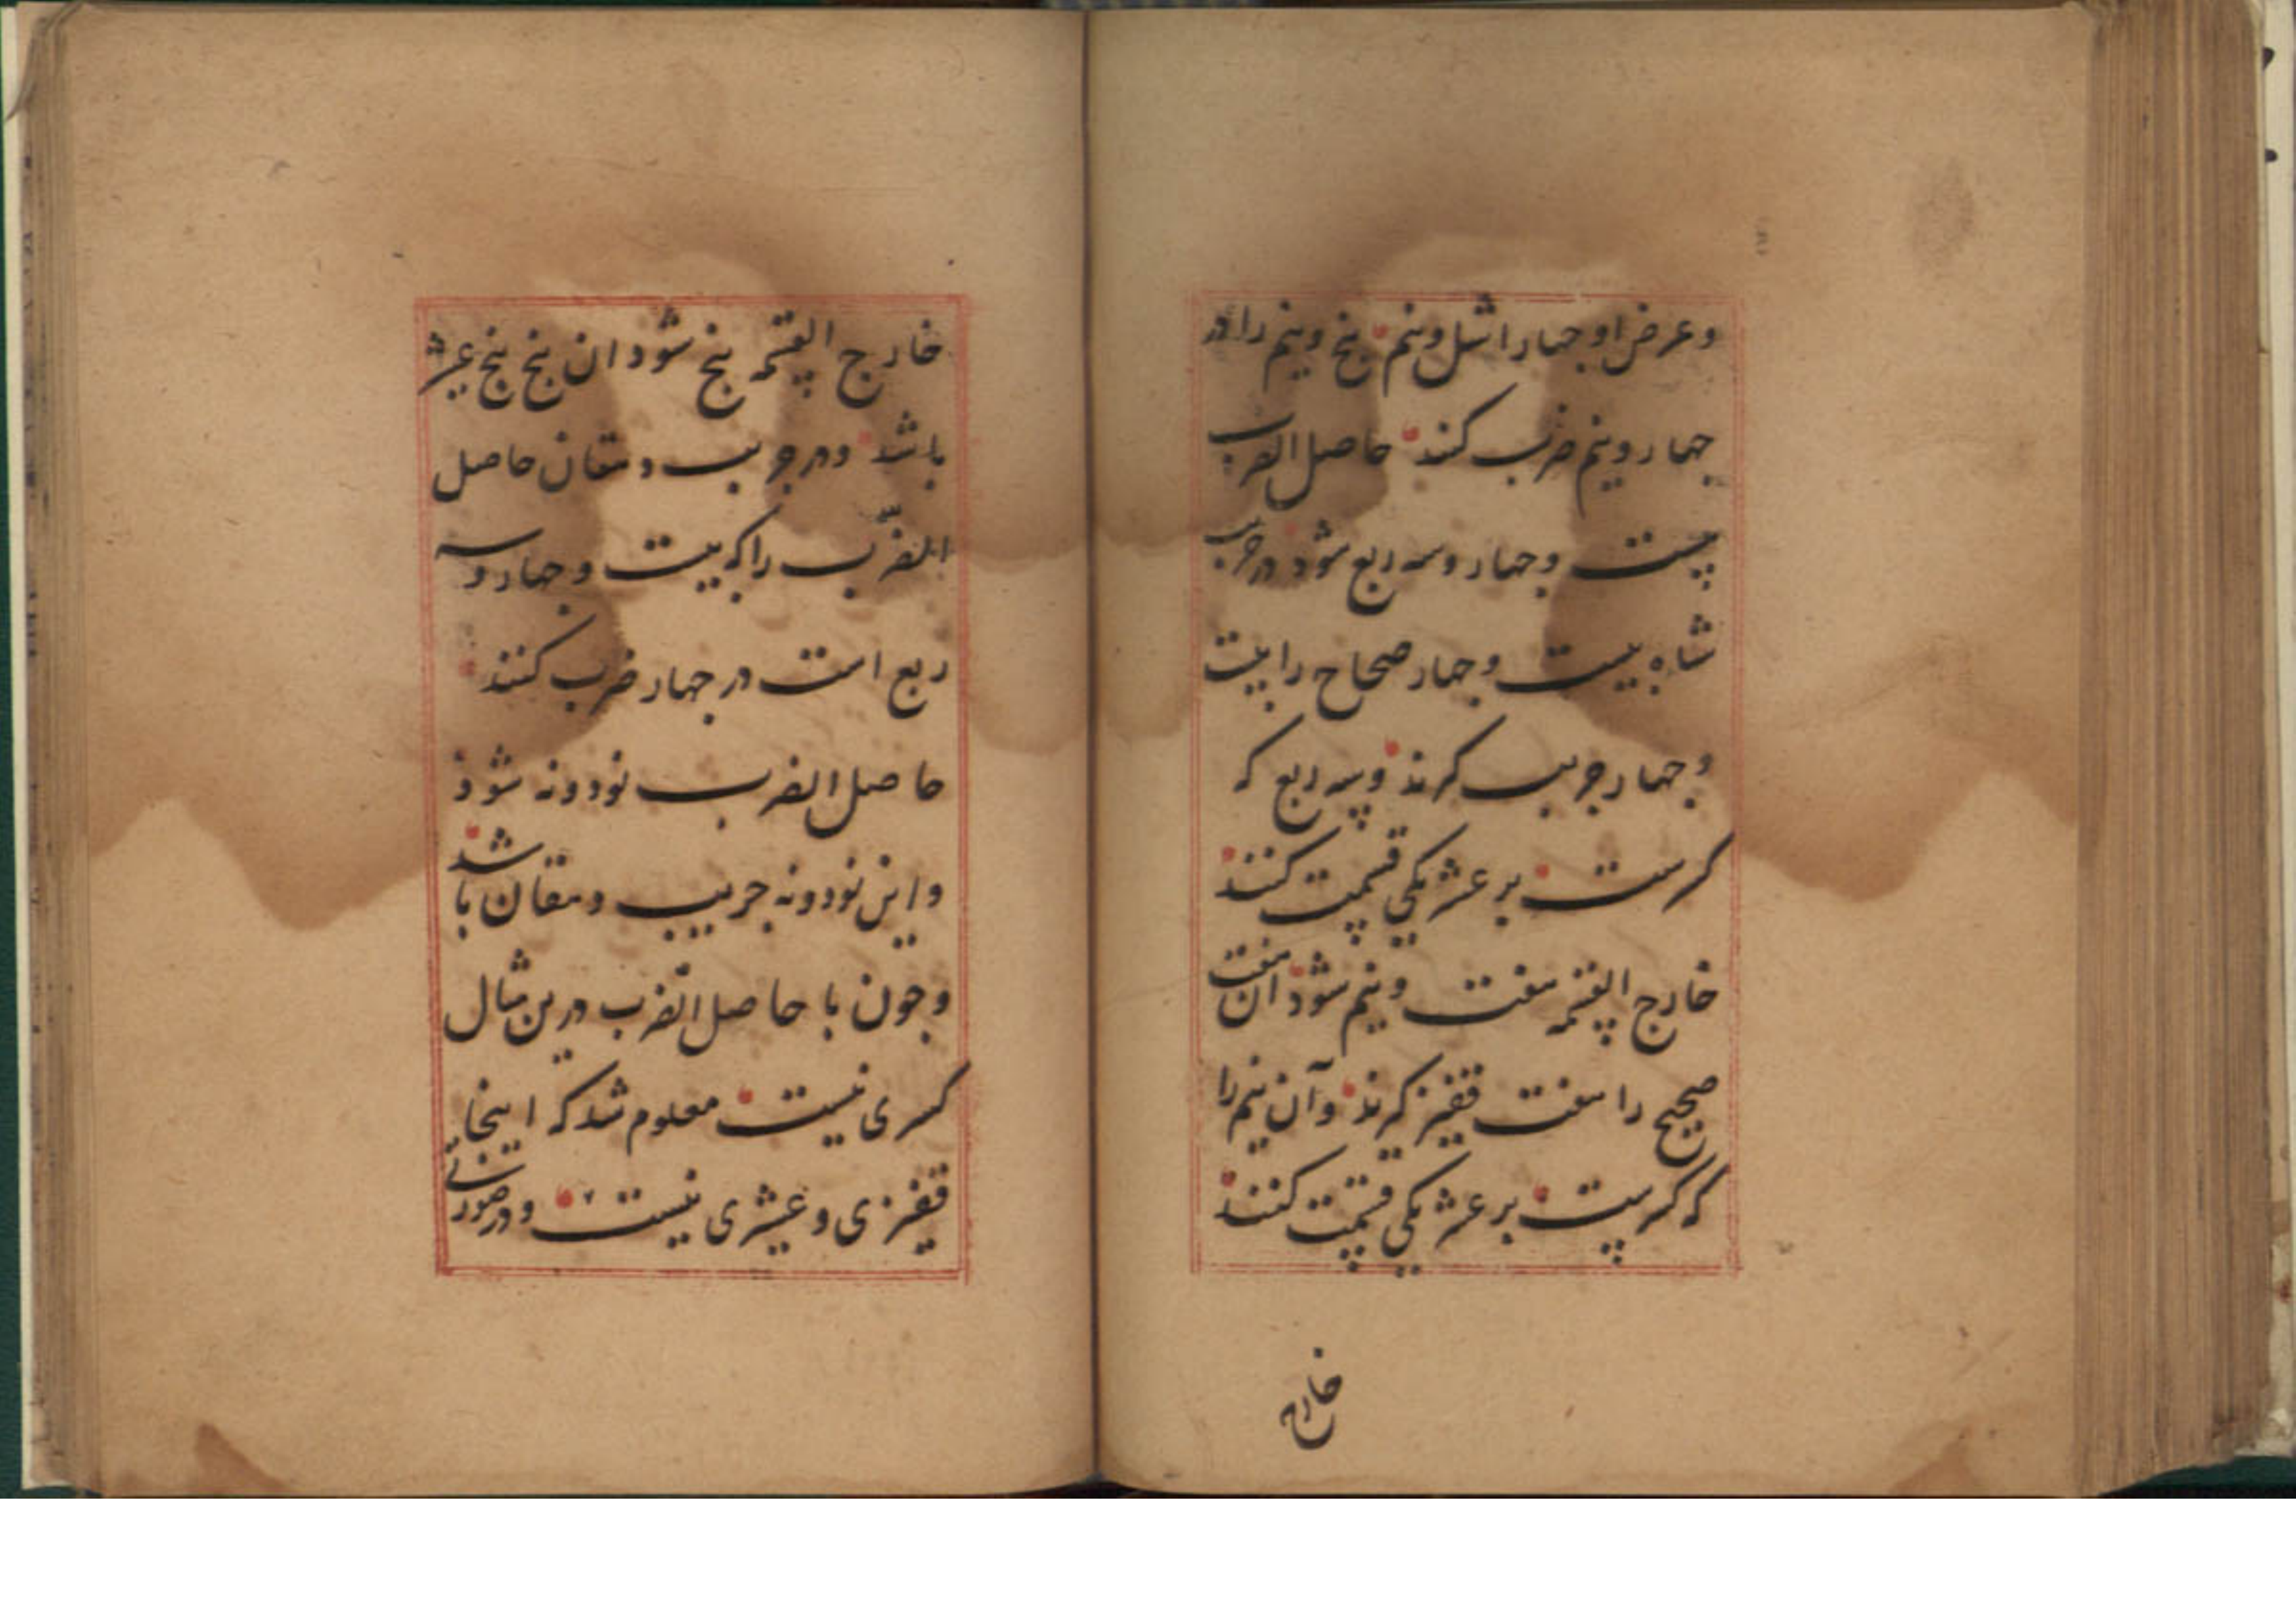 وعرض او جهار اشل ونیم پنج ونیم را در
جهار ونیم ضرب کنند حاصل الضرب
بیست وجهار وسه ربع شود در جریب
شاه بیست وجهار صحاح را بیست
وجهار جریب کرند وسه ربع که
کسرست بر عشر یکی قسمت کنند
خارج القسمه هفت ونیم شود ان هفت
صحیح را هفت قفیز کرند وآن نیم را
که کسرست بر عشر یکی قسمت کنند
خارج
خارج القسمه پنج شود ان پنج پنج عشیر
باشد ودر جریب دهقان حاصل
الضرب را که بیست وجهار وسه
ربع است در جهار ضرب کنند
حاصل الضرب نود ونه شود
واین نود ونه جریب دهقان باشد
وجون با حاصل الضرب درین مثال
کسری نیست معلوم شد که اینجا
قفیزی وعشیری نیست ودر صورتی